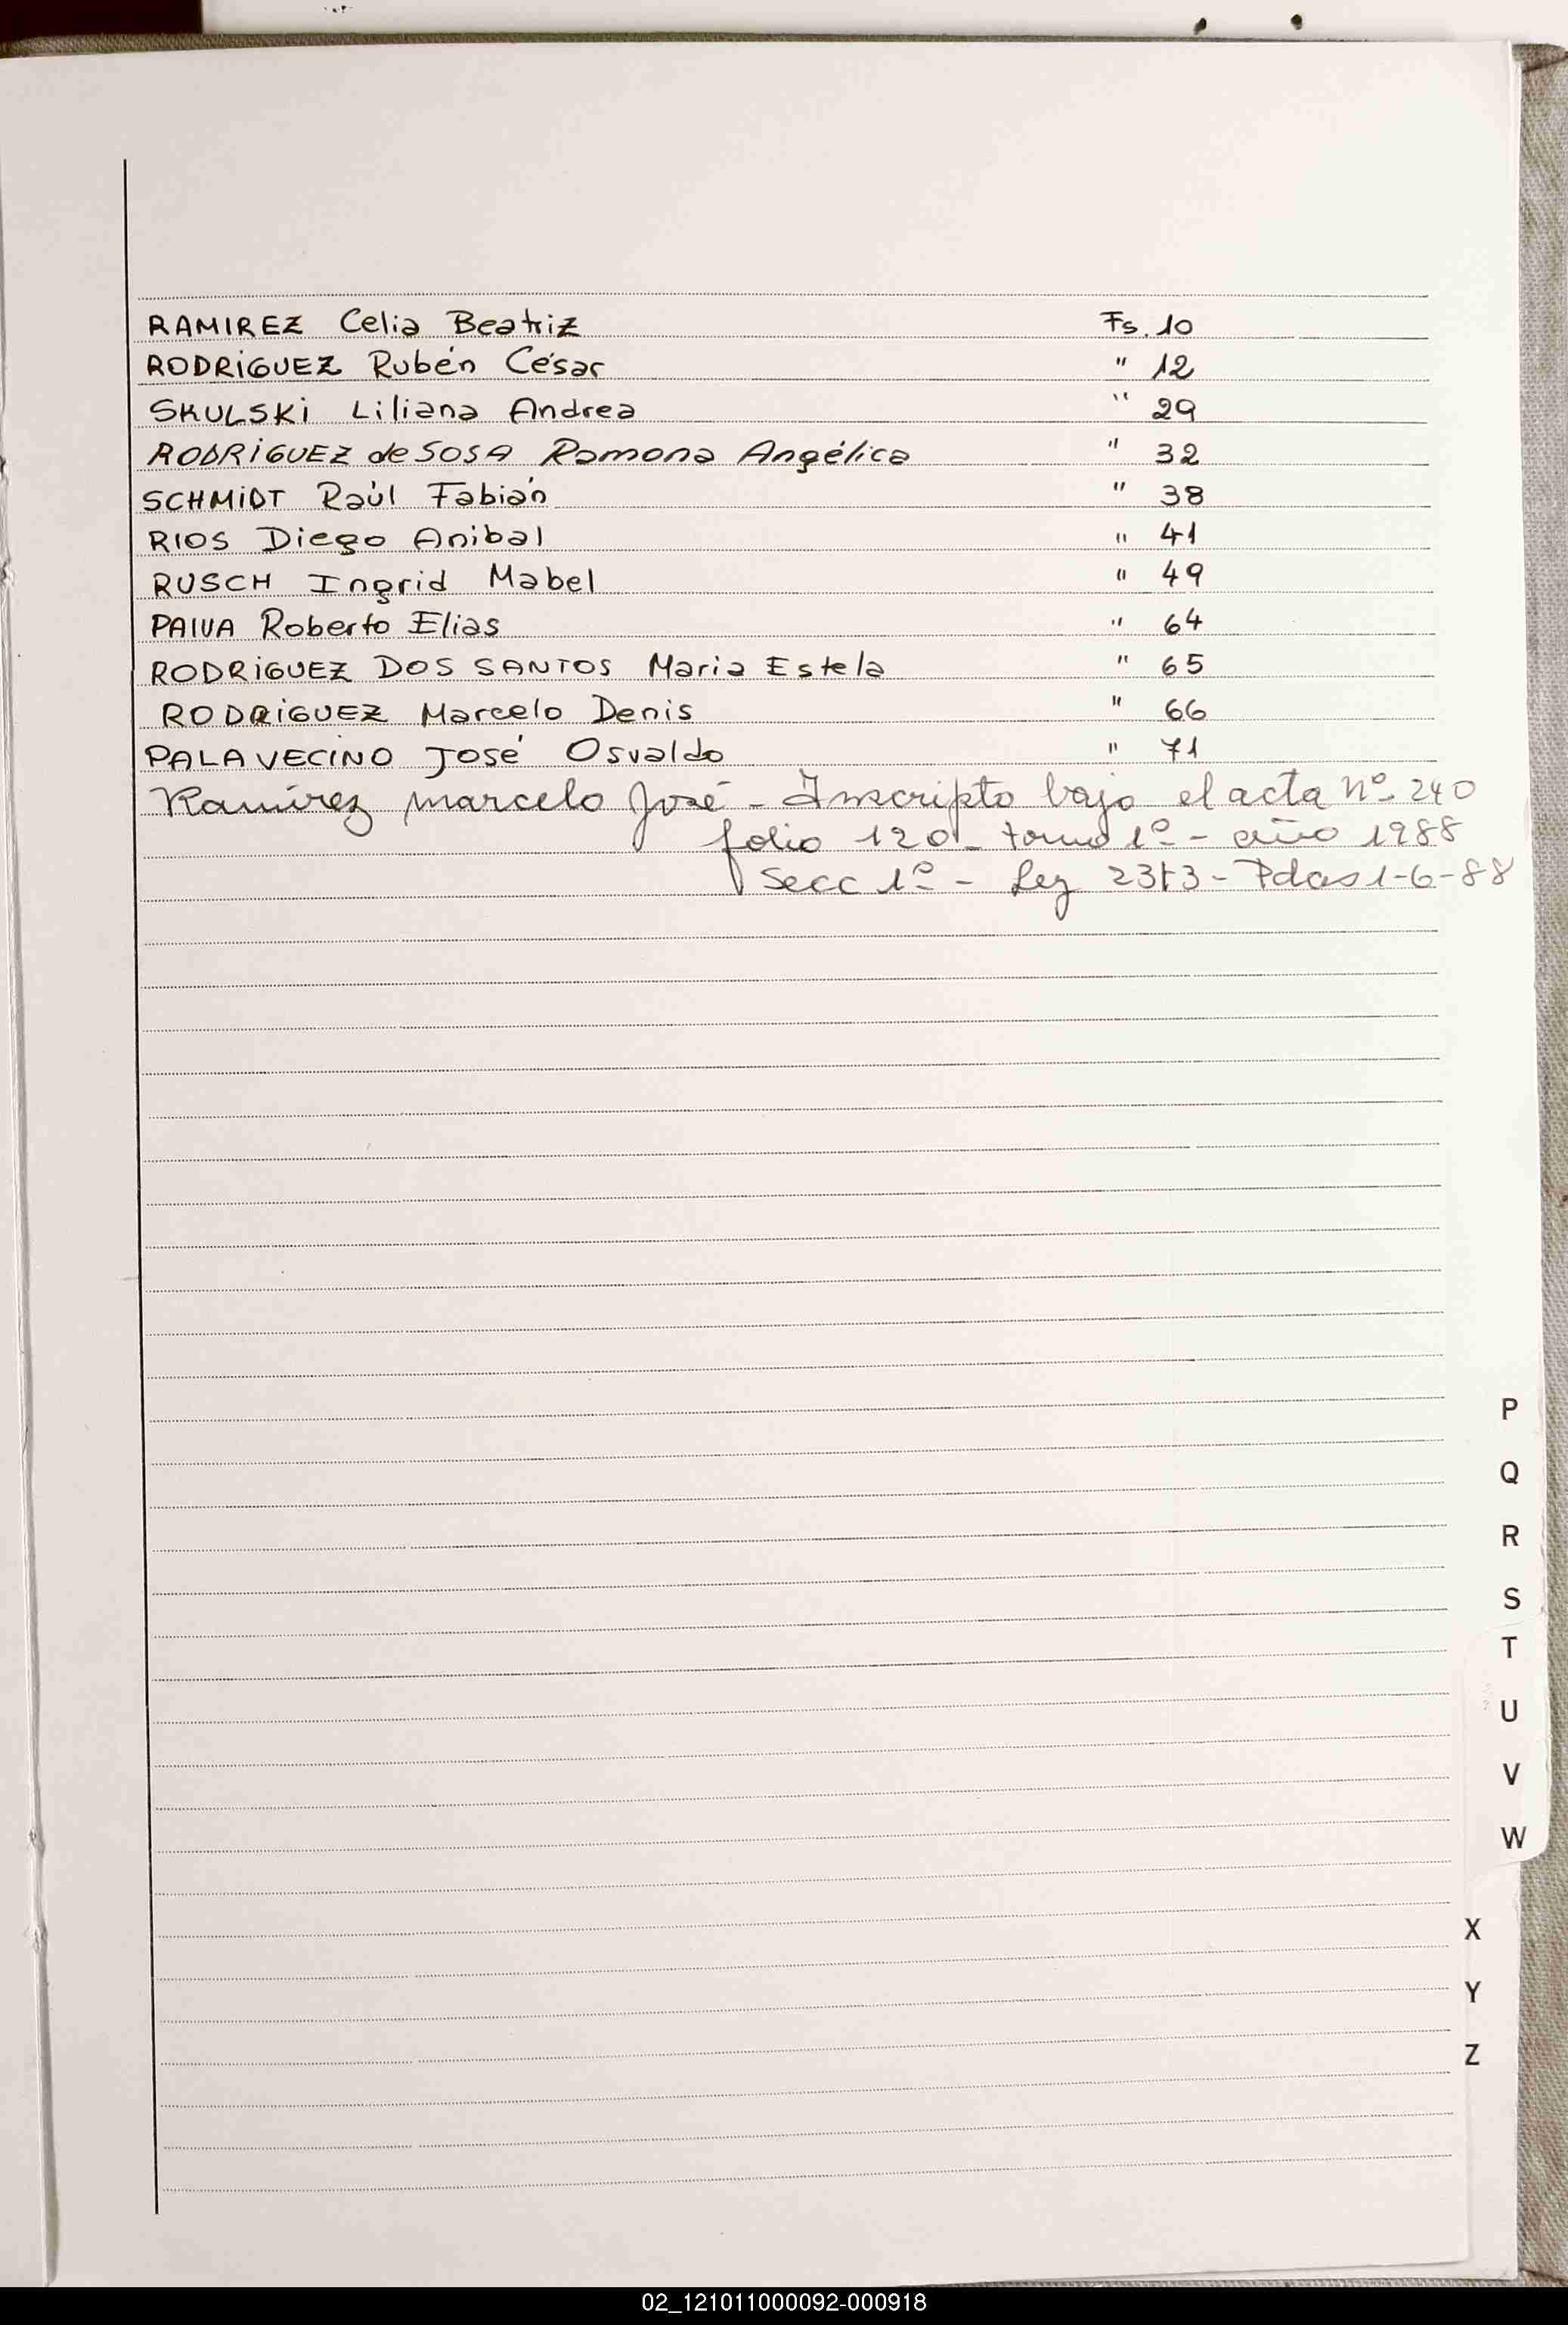 RAMIREZ Celia Beatriz Fs. 10
RODRiGUEZ Rubén César " 12
SKULSKi Liliana Andrea " 29
RODRiGUEZ de SOSA Ramona Angélica " 32
SCHMiDT Raúl Fabián " 38
RIOS Diego Anibal " 41
RUSCH Ingrid Mabel " 49
PAIVA Roberto Elias " 64
RODRiGUEZ DOS SANTOS Maria Estela " 65
RODRiGUEZ Marcelo Denis " 66
PALAVECINO José Osvaldo " 71
Ramírez marcelo José - Inscripto bajo el acta nº 240
folio 120 - tomo 1º - año 1988
Secc 1º - Ley - Pdas 1-6-88
P
Q
R
S
T
U
V
W
X
Y
Z
02_121011000092-000918